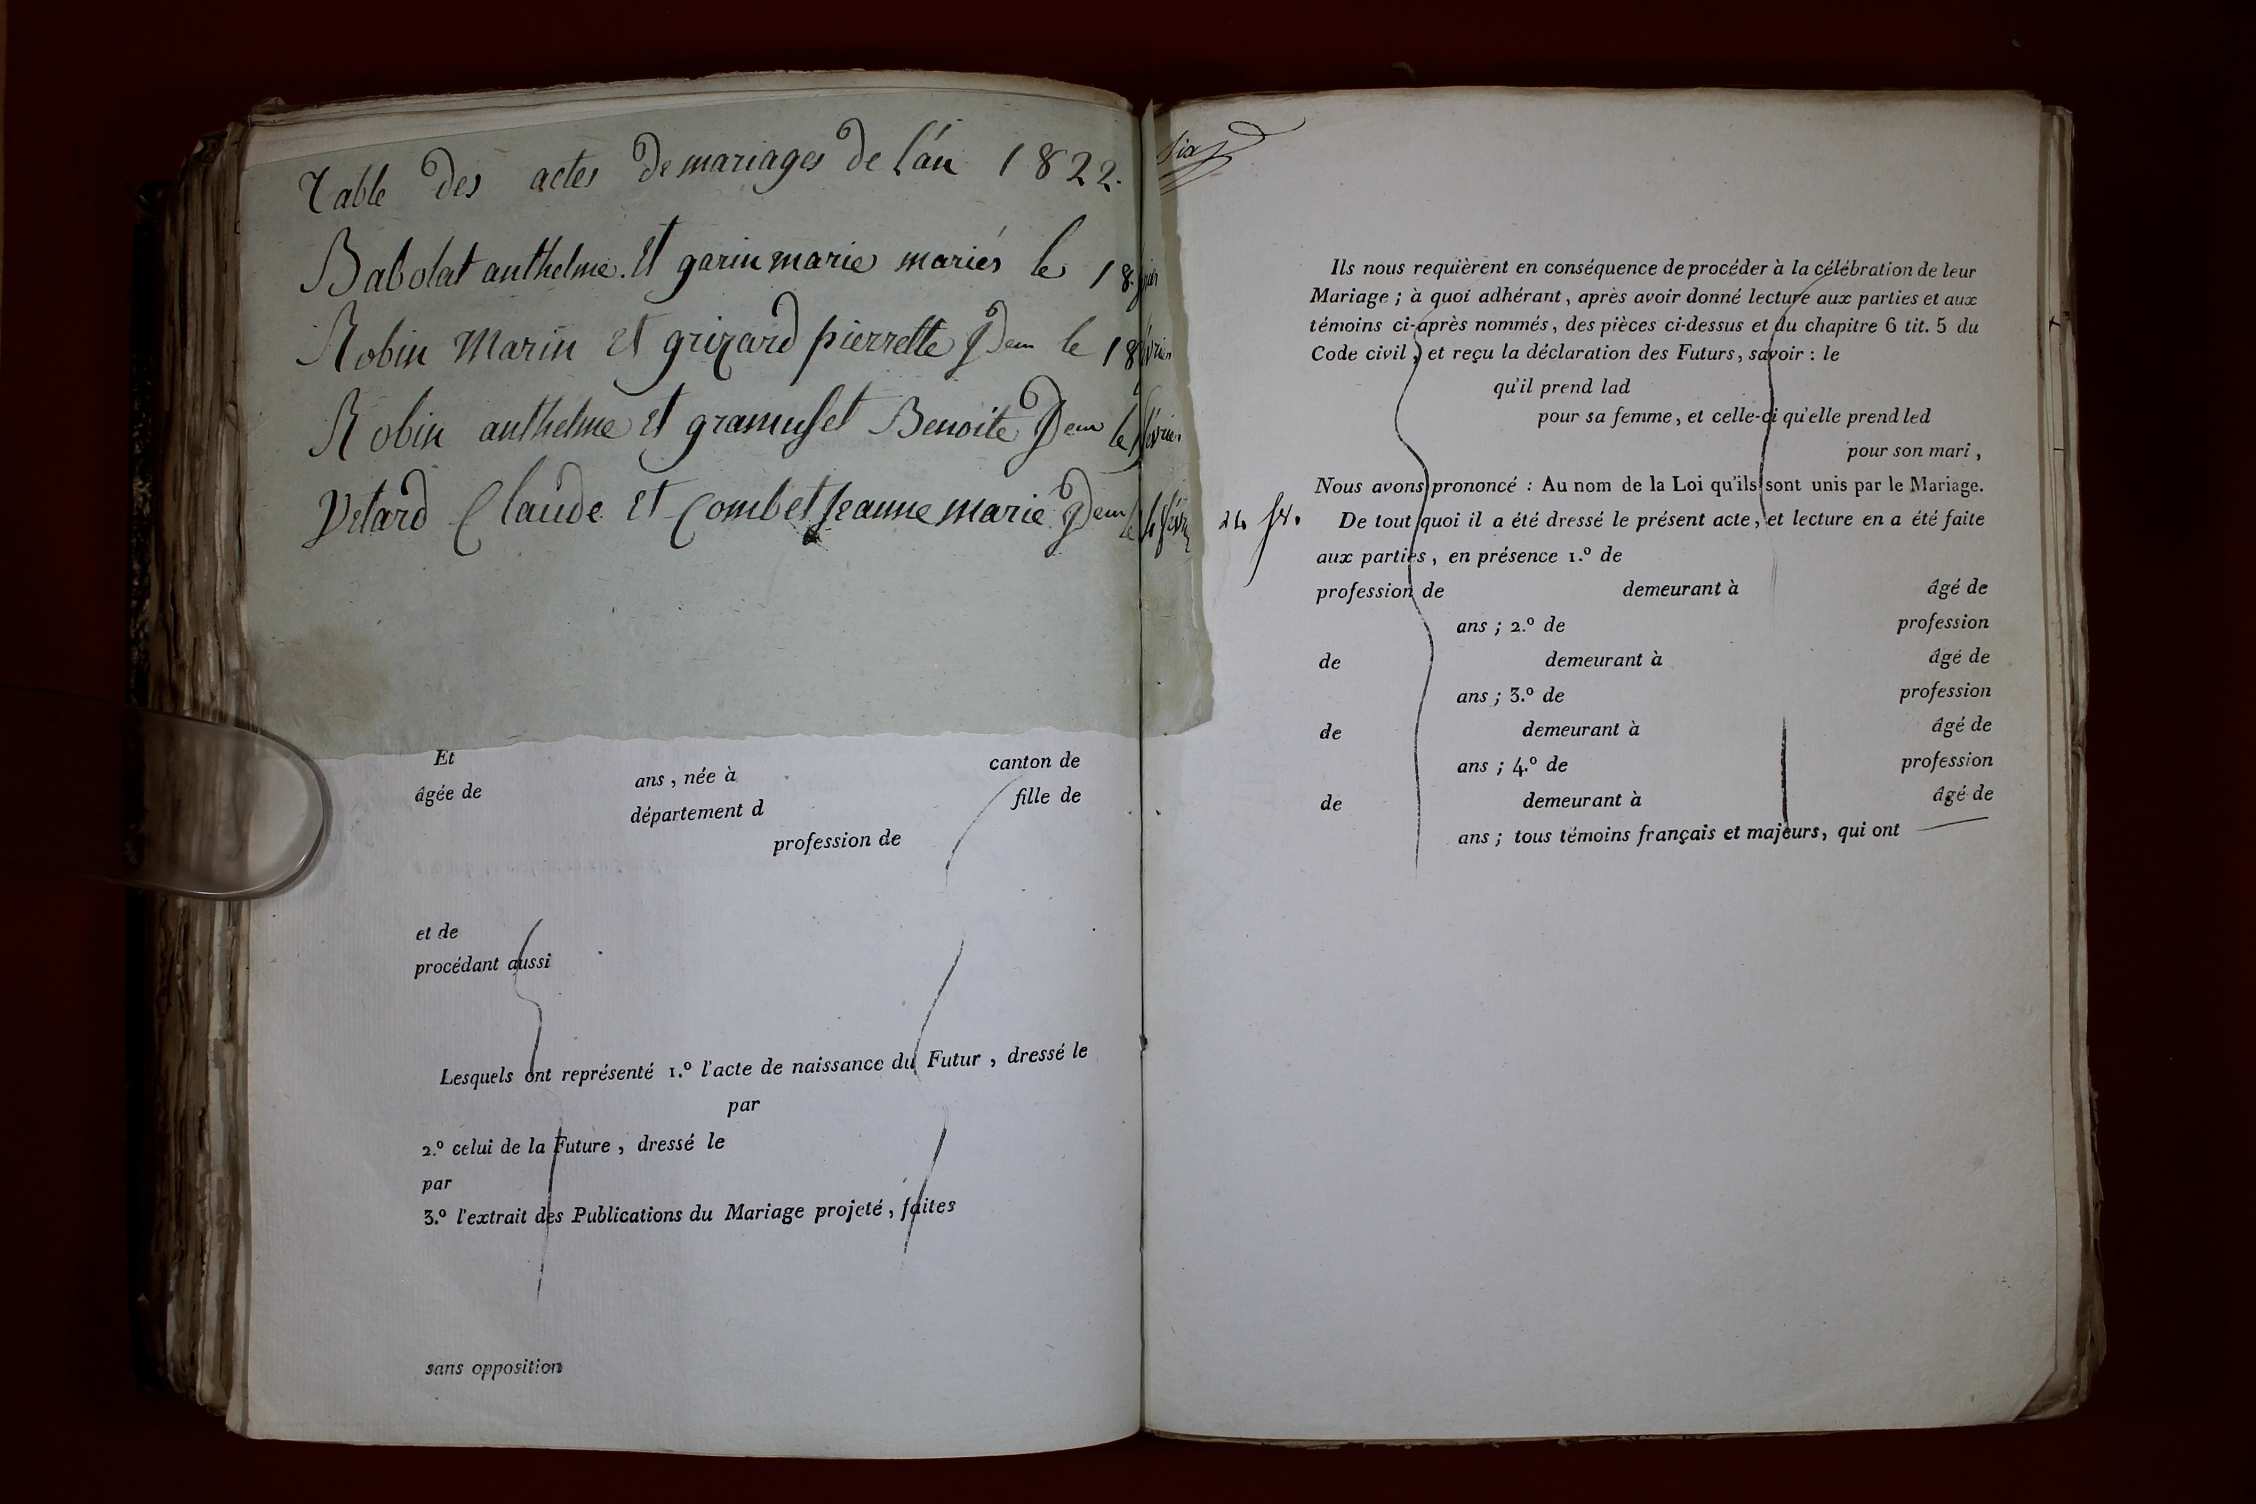 Table des actes de mariages de l'an 1822.
Babolat anthelme. et garin marie mariés le 18
Robin Marin et grizard pierrette Idem le 18
Robin anthelme et gramuset Benoite Idem le février
Vetard Claude et Combet jeanne marie Idem le
Et
âgée de ans, née à canton de
département d fille de
profession de
et de
procédant aussi
Lesquels ont représenté 1.º l'acte de naissance du Futur, dressé le
par
2.º celui de la Future, dressé le
par
3.º l'extrait des Publications du Mariage projeté, faites
sans opposition
six
Ils nous requièrent en conséquence de procéder à la célébration de leur
Mariage; à quoi adhérant, après avoir donné lecture aux parties et aux
témoins ci-après nommés, des pièces ci-dessus et du chapitre 6 tit. 5 du
Code civil, et reçu la déclaration des Futurs, savoir: le
qu'il prend lad
pour sa femme, et celle-ci qu'elle prend led
pour son mari,
Nous avons prononcé: Au nom de la Loi qu'ils sont unis par le Mariage.
De tout quoi il a été dressé le présent acte, et lecture en a été faite
aux parties, en présence 1.º de
profession de demeurant à âgé de
ans; 2.º de profession
de demeurant à âgé de
ans; 3.º de profession
de demeurant à âgé de
ans; 4.º de profession
de demeurant à âgé de
ans; tous témoins français et majeurs, qui ont